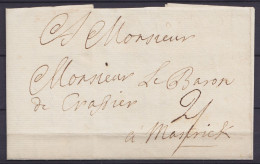 A Monsieur
Monsieur Le Baron
de Crassier
à Mastrick